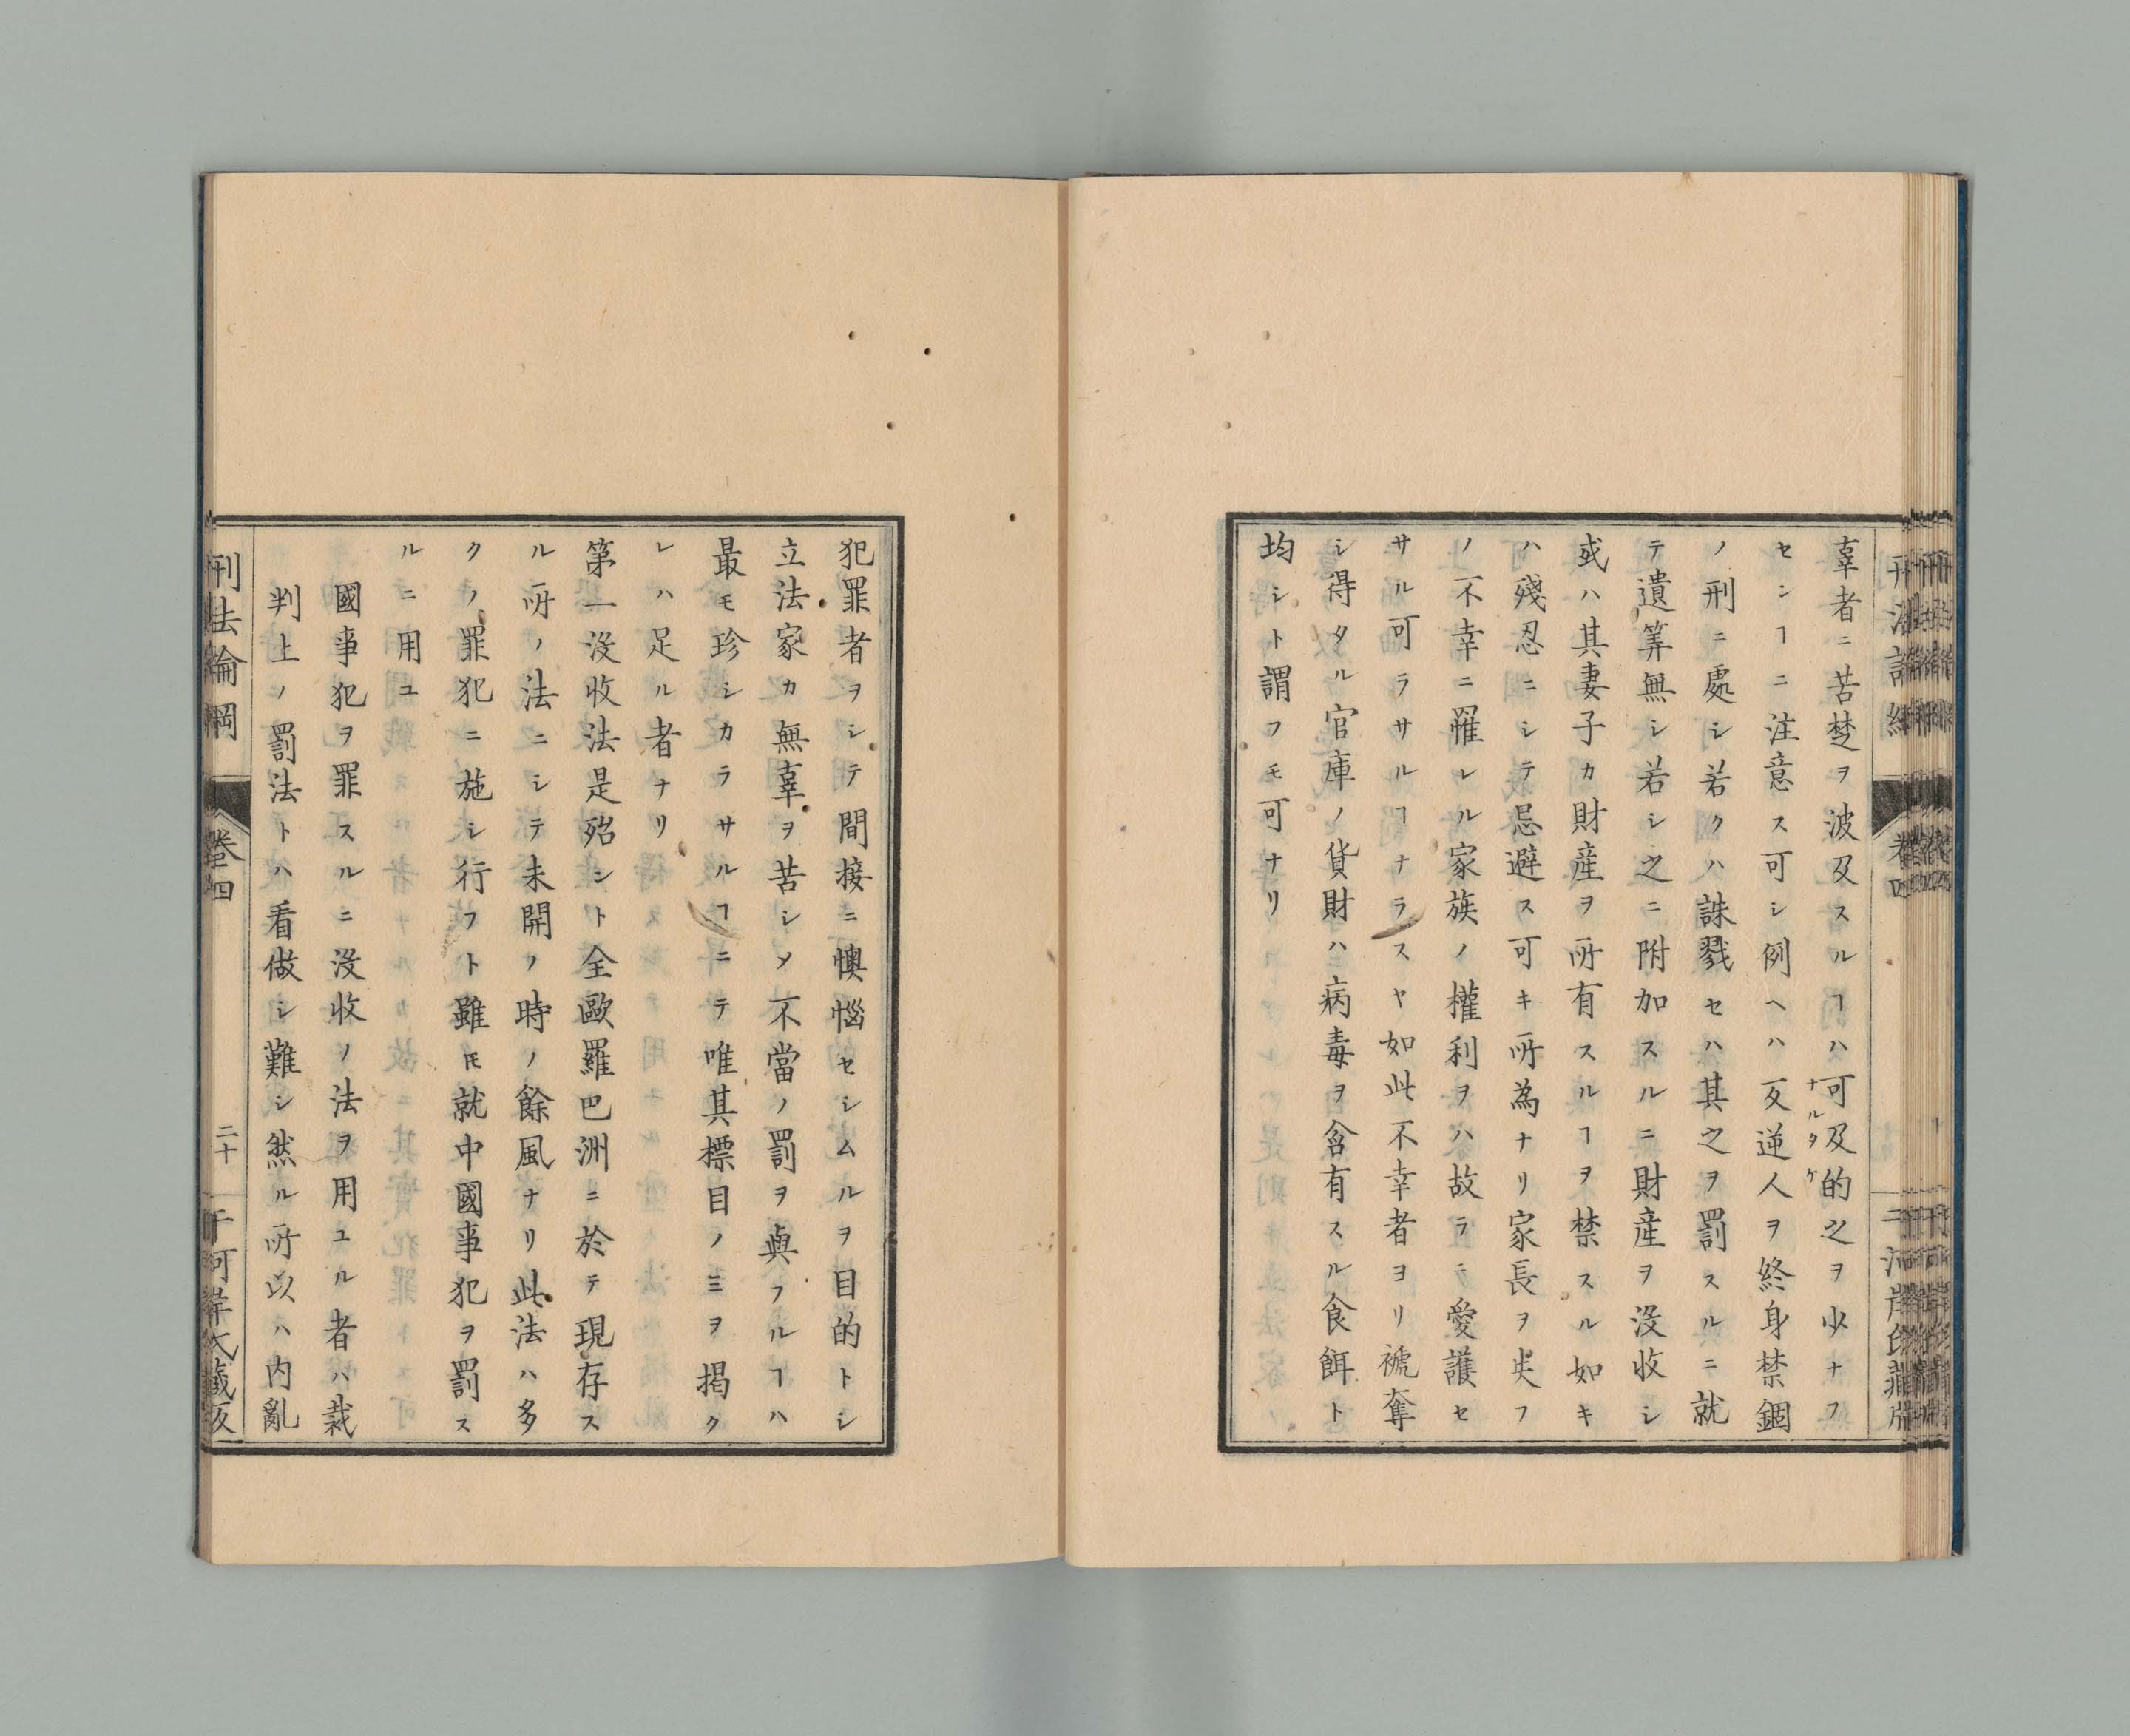 辜者ニ苦楚ヲ波及スルヿハ可及的之ヲ少ナフ
ナルタケ
センヿニ注意ス可シ例ヘハ反逆人ヲ終身禁錮
ノ刑ニ處シ若クハ誅戮セハ其之ヲ罰スルニ就
テ遺筭無シ若シ之ニ附加スルニ財産ヲ沒收シ
或ハ其妻子カ財産ヲ所有スルヿヲ禁スル如キ
ハ殘忍ニシテ忌避ス可キ所為ナリ家長ヲ失フ
ノ不幸ニ罹レル家族ノ權利ヲハ故ラニ愛護セ
サル可ラサルヿナラスヤ如此不幸者ヨリ褫奪
シ得タル官庫ノ貨財ハ病毒ヲ含有スル食餌ト
均シト謂フモ可ナリ
犯罪者ヲシテ間接ニ懊惱セシムルヲ目的トシ
立法家カ無辜ヲ苦シメ不當ノ罰ヲ與フルヿハ
最モ珍シカラサルヿニテ唯其標目ノミヲ掲ク
レハ足ル者ナリ
第一沒收法是殆ント全歐羅巴洲ニ於テ現存ス
ル所ノ法ニシテ未開ノ時ノ餘風ナリ此法ハ多
クノ罪犯ニ施シ行フト雖𪜈就中國事犯ヲ罰ス
ルニ用ユ
國事犯ヲ罪スルニ沒收ノ法ヲ用ユル者ハ裁
判上ノ罰法トハ看做シ難シ然ル所以ハ内亂
刑法論綱
卷四
二十